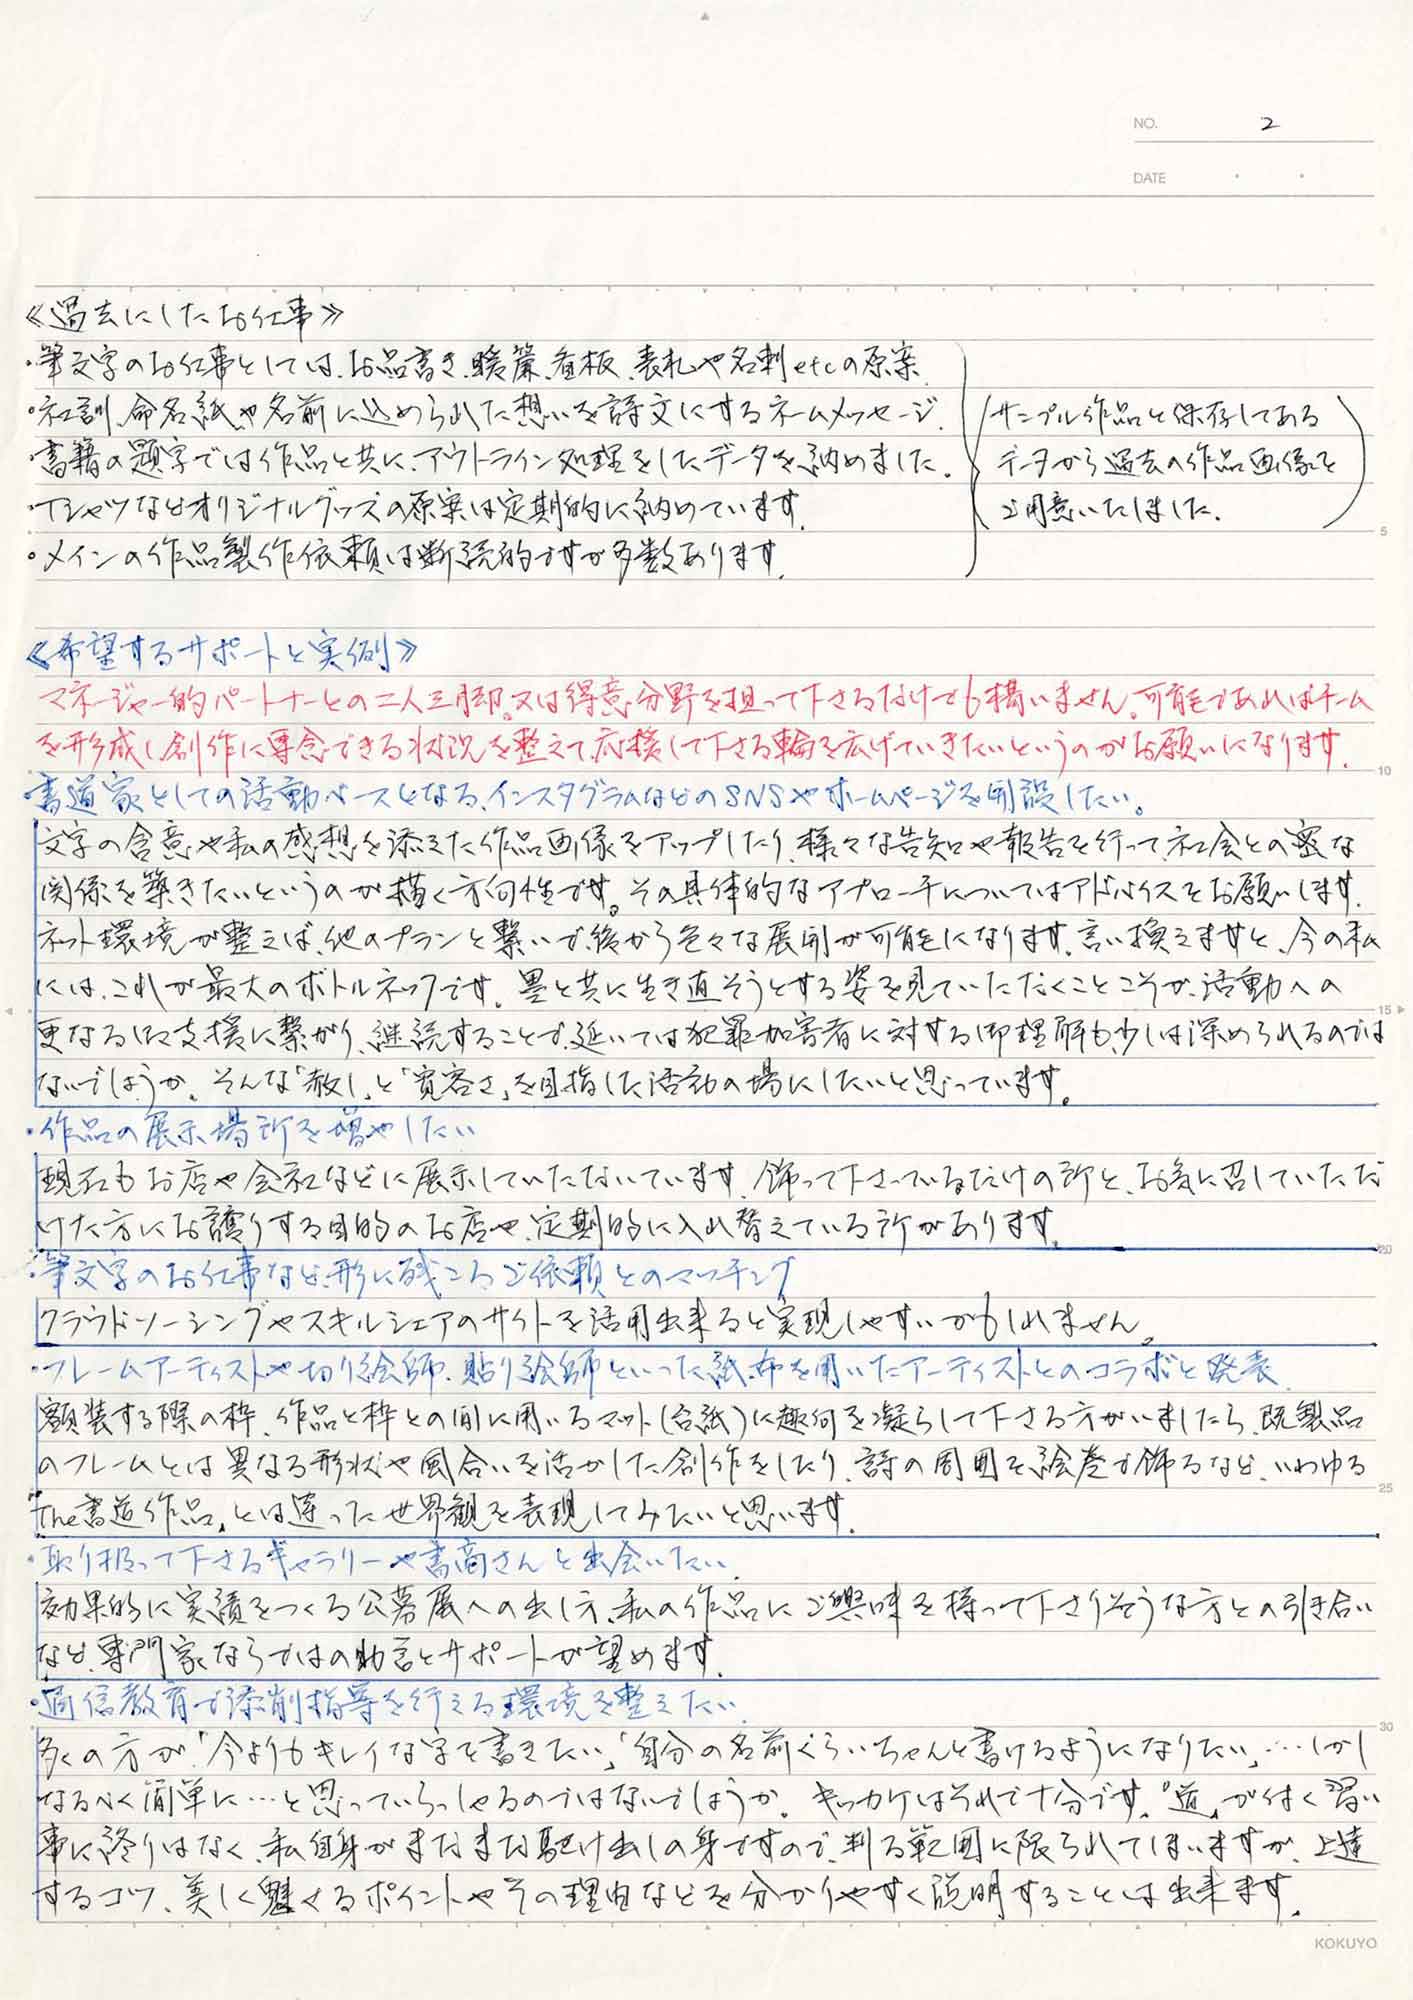 NO. 2
DATE
《過去にしたお仕事》
・筆文字のお仕事としては、お品書き、暖簾、看板、表札や名刺etcの原案
・社訓、命名紙や名前に込められた想いを詩文にするネームメッセージ.
・書籍の題字では作品と共に、アウトライン処理をしたデータを納めました.
・Tシャツなどオリジナルグッズの原案は定期的に納めています.
・メインの作品製作依頼は断続的ですが多数あります.
(サンプル作品と保存してある
データから過去の作品画像を
ご用意いたしました.)
《希望するサポートと実例》
マネージャー的パートナーとの二人三脚。又は得意分野を担って下さるだけでも構いません。可能であればチーム
を形成し創作に専念できる状況を整えて、応援して下さる輪を広げていきたいというのがお願いになります.
・書道家としての活動ベースとなる、インスタグラムなどのSNSやホームページを開設したい。
文字の含意や私の感想を添えた作品画像をアップしたり、様々な告知や報告を行って、社会との密な
関係を築きたいというのが描く方向性です。その具体的なアプローチについてはアドバイスをお願いします.
ネット環境が整えば、他のプランと繋いで、後から色々な展開が可能になります.言い換えますと、今の私
には、これが最大のボトルネックです.墨と共に生き直そうとする姿を見ていただくことこそが、活動への
更なる御支援に繋がり、継続することで、延いては犯罪加害者に対する御理解も、少しは深められるのでは
ないでしょうか。そんな「赦し」と「寛容さ」を目指した活動の場にしたいと思っています.
・作品の展示場所を増やしたい
現在もお店や会社などに展示していただいています.飾って下さっているだけの所と、お気に召していただ
けた方にお譲りする目的のお店や、定期的に入れ替えている所があります.
・筆文字のお仕事など、形に残るご依頼とのマッチング
クラウドソーシングやスキルシェアのサイトを活用出来ると実現しやすいかもしれません。
・フレームアーティストや切り絵師、貼り絵師といった紙、布を用いたアーティストとのコラボと発表
額装する際の枠、作品と枠との間に用いるマット(台紙)に趣向を凝らして下さる方がいましたら、既製品
のフレームとは異なる形状や風合いを活かした創作をしたり、詩の周囲を絵巻で飾るなど、いわゆる
「The書道作品」とは違った世界観を表現してみたいと思います.
・取り扱って下さるギャラリーや書商さんと出会いたい
効果的に実績をつくる公募展への出し方、私の作品にご興味を持って下さりそうな方との引き合い
など、専門家ならではの助言とサポートが望めます.
・通信教育で添削指導を行える環境を整えたい
多くの方が「今よりもキレイな字を書きたい」「自分の名前ぐらいちゃんと書けるようになりたい」…しかし
なるべく簡単に…と思っていらっしゃるのではないでしょうか。キッカケはそれで十分です.『道』が付く習い
事に終りはなく、私自身がまだまだ駆け出しの身ですので、判る範囲に限られてしまいますが、上達
するコツ、美しく魅せるポイントやその理由などを分かりやすく説明することは出来ます.
KOKUYO